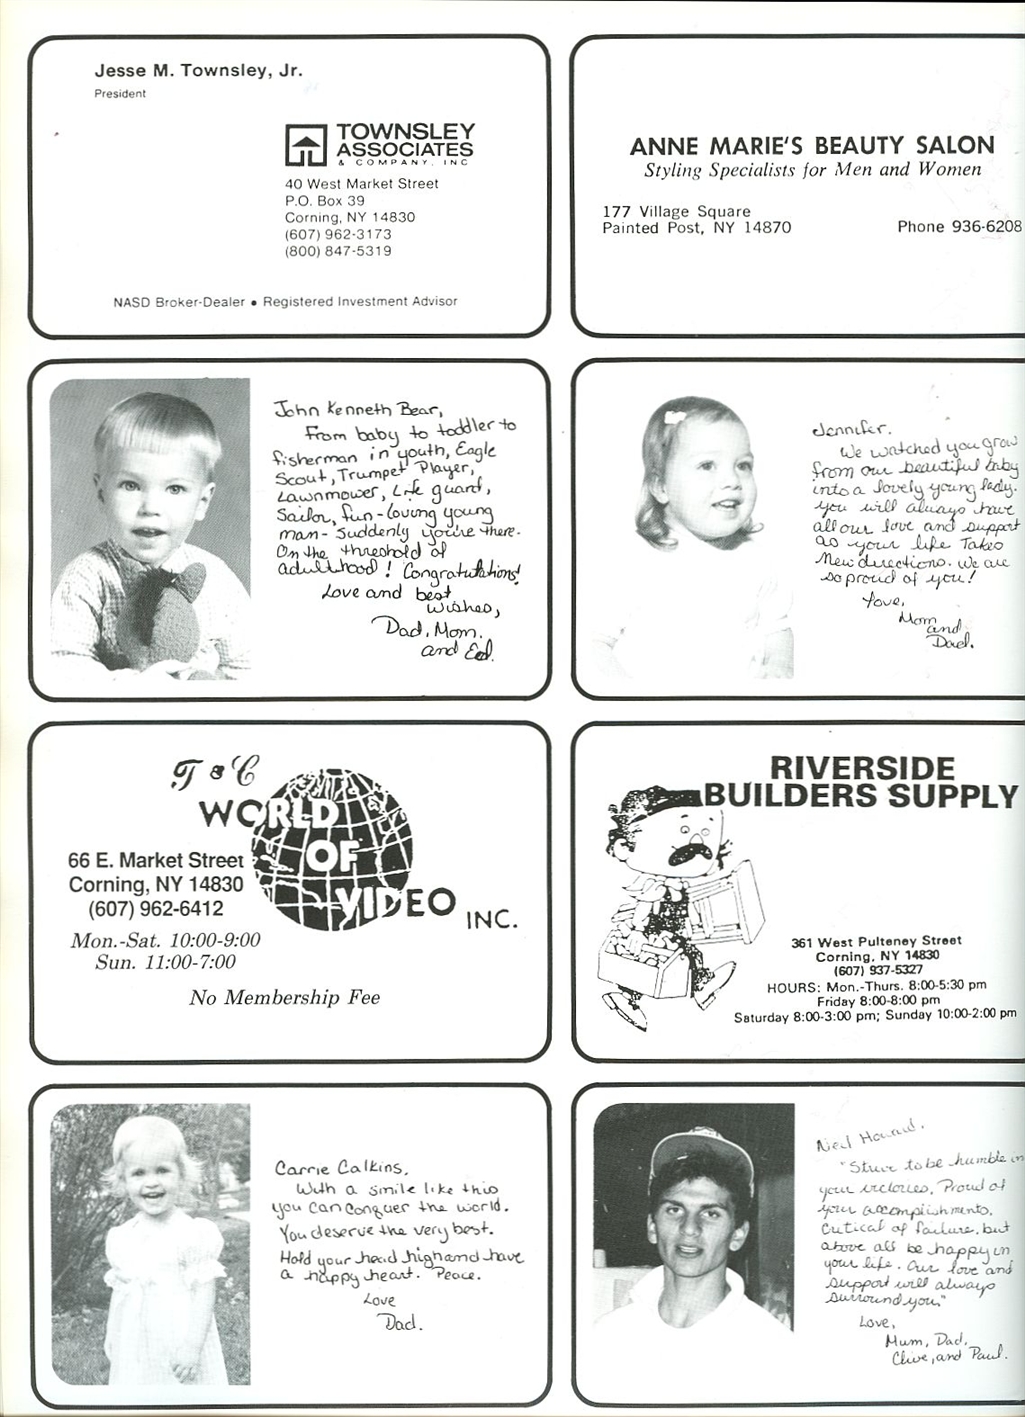 Jesse M. Townsley, Jr.
President
TOWNSLEY
ASSOCIATES
& COMPANY, INC
40 West Market Street
P.O. Box 39
Corning, NY 14830
(607) 962-3173
(800) 847-5319
NASD Broker-Dealer • Registered Investment Advisor
ANNE MARIE'S BEAUTY SALON
Styling Specialists for Men and Women
177 Village Square
Painted Post, NY 14870
Phone 936-6208
John Kenneth Bear,
From baby to toddler to
fisherman in youth, Eagle
Scout, Trumpet Player,
Lawnmower, Life guard,
Sailor, fun-loving young
man- suddenly you're there.
On the threshold of
adulthood! Congratulations!
Love and best
wishes,
Dad, Mom,
and Ed.
Jennifer,
We watched you grow
from our beautiful baby
into a lovely young lady.
You will always have
all our love and support
as your life takes
new directions. We are
so proud of you!
Love,
Mom
and
Dad.
T & C
WORLD
OF
VIDEO INC.
66 E. Market Street
Corning, NY 14830
(607) 962-6412
Mon.-Sat. 10:00-9:00
Sun. 11:00-7:00
No Membership Fee
RIVERSIDE
BUILDERS SUPPLY
361 West Pulteney Street
Corning, NY 14830
(607) 937-5327
HOURS: Mon.-Thurs. 8:00-5:30 pm
Friday 8:00-8:00 pm
Saturday 8:00-3:00 pm; Sunday 10:00-2:00 pm
Carrie Calkins,
With a smile like this
you can conquer the world.
You deserve the very best.
Hold your head high and have
a happy heart. Peace.
Love
Dad.
Neil Howard,
"Strive to be humble in
your victories, Proud of
your accomplishments,
Critical of failure, but
above all be happy in
your life. Our love and
support will always
surround you."
Love,
Mum, Dad,
Clive, and Paul.